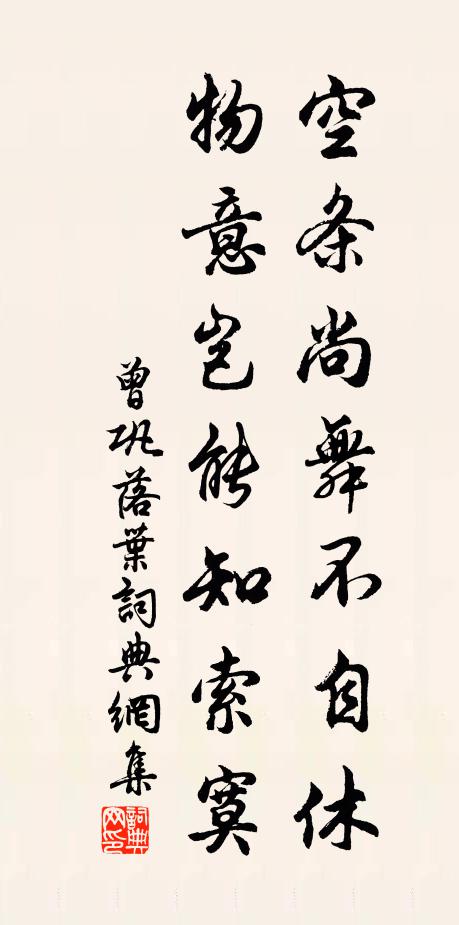 空条尚舞不自休
物意岂能知索寞
曾巩落葉詞典網集
詞典网印